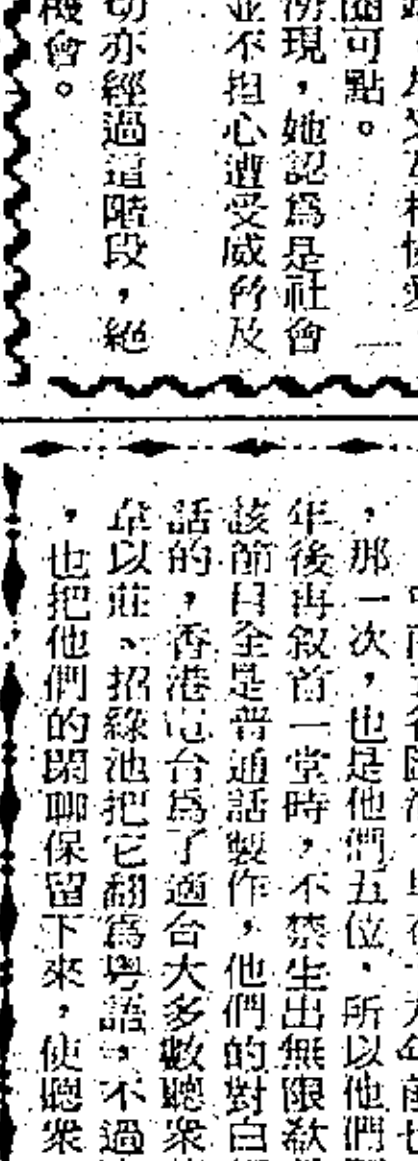 圈可點。
所現，她認爲是社會
並不担心遭受威脅及
切亦經過這階段，絕
機會。
，那一次，也是他們五位，所以他們
年後再叙首一堂時，不禁生出無限歡
該節目全是普通話製作，他們的對白
話的，香港電台爲了適合大多數聽衆
韋以莊、招綠池把它翻爲粵語，不過
，也把他們的閑聊保留下來，使聽衆